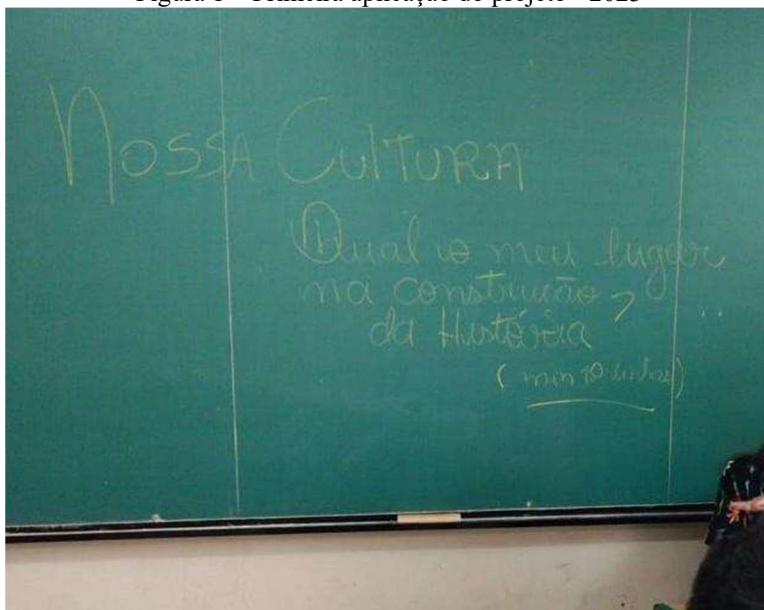 NOSSA CULTURA
Qual é o meu lugar
na construção ?
da História
(min 10 linhas)